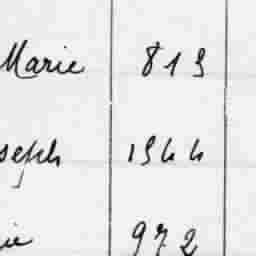 Marie 819
seph 1944
ie 972